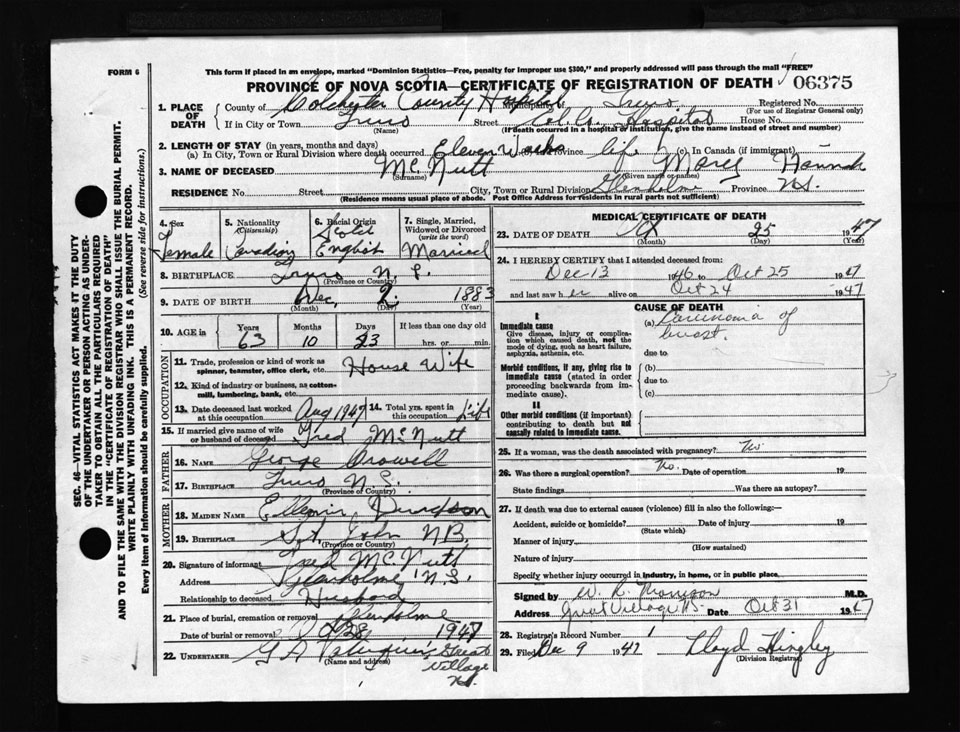 FORM 6
This form if placed in an envelope, marked "Dominion Statistics—Free, penalty for improper use $300," and properly addressed will pass through the mail "FREE"
PROVINCE OF NOVA SCOTIA—CERTIFICATE OF REGISTRATION OF DEATH 06375
1. PLACE OF DEATH
County of Colchester County Hospital Municipality of Truro Registered No.
(For use of Registrar General only)
If in City or Town Truro Street Col. Co. Hospital House No.
(Name) (If death occurred in a hospital or institution, give the name instead of street and number)
2. LENGTH OF STAY (in years, months and days)
(a) In City, Town or Rural Division where death occurred Eleven Weeks Province life (c) In Canada (if immigrant)
3. NAME OF DECEASED McNutt Mary Hannah
(Surname) (Given name or names)
RESIDENCE No. Street City, Town or Rural Division Glenholme Province N.S.
(Residence means usual place of abode. Post Office Address for residents in rural parts not sufficient)
4. Sex Female
5. Nationality (Citizenship) Canadian
6. Racial Origin Scotch English
7. Single, Married, Widowed or Divorced (write the word) Married
8. BIRTHPLACE Truro N.S.
(Province or Country)
9. DATE OF BIRTH Dec, 2. 1883
(Month) (Day) (Year)
10. AGE in Years Months Days If less than one day old
63 10 23 hrs. or min.
OCCUPATION
11. Trade, profession or kind of work as spinner, teamster, office clerk, etc. House Wife
12. Kind of industry or business, as cotton-mill, lumbering, bank, etc.
13. Date deceased last worked at this occupation Aug 1947
14. Total yrs. spent in this occupation Life
15. If married give name of wife or husband of deceased Fred McNutt
FATHER
16. NAME George Crowell
17. BIRTHPLACE Truro N.S.
(Province or Country)
MOTHER
18. MAIDEN NAME Davidson
19. BIRTHPLACE St. John N.B.
(Province or Country)
20. Signature of informant Fred McNutt
Address Glenholme N.S.
Relationship to deceased Husband
21. Place of burial, cremation or removal Glenholme
Date of burial or removal Oct 28 1947
22. UNDERTAKER G A Great Village N.S.
(Name and address)
MEDICAL CERTIFICATE OF DEATH
23. DATE OF DEATH Oct 25 1947
(Month) (Day) (Year)
24. I HEREBY CERTIFY that I attended deceased from:
Dec 13 1946 to Oct 25 1947
and last saw h er alive on Oct 24 1947
CAUSE OF DEATH
I
Immediate cause
Give disease, injury or complication which caused death, not the mode of dying, such as heart failure, asphyxia, asthenia, etc.
(a) Carcinoma of breast.
due to
Morbid conditions, if any, giving rise to immediate cause (stated in order proceeding backwards from immediate cause).
(b)
due to
(c)
II
Other morbid conditions (if important) contributing to death but not causally related to immediate cause.
25. If a woman, was the death associated with pregnancy? No
26. Was there a surgical operation? No. Date of operation 19
State findings Was there an autopsy?
27. If death was due to external causes (violence) fill in also the following:—
Accident, suicide or homicide? Date of injury 19
(State which)
Manner of injury
(How sustained)
Nature of injury
Specify whether injury occurred in industry, in home, or in public place
Signed by W. R. Morrison M.D.
Address Great Village N.S. Date Oct 31 1947
28. Registrar's Record Number 1
29. Filed Dec 9 1947 Lloyd Hingley
(Division Registrar)
SEC. 46—VITAL STATISTICS ACT MAKES IT THE DUTY
OF THE UNDERTAKER OR PERSON ACTING AS UNDER-
TAKER TO OBTAIN ALL THE PARTICULARS REQUIRED
IN THE "CERTIFICATE OF REGISTRATION OF DEATH"
AND TO FILE THE SAME WITH THE DIVISION REGISTRAR WHO SHALL ISSUE THE BURIAL PERMIT.
WRITE PLAINLY WITH UNFADING INK. THIS IS A PERMANENT RECORD.
Every item of information should be carefully supplied. (See reverse side for instructions.)